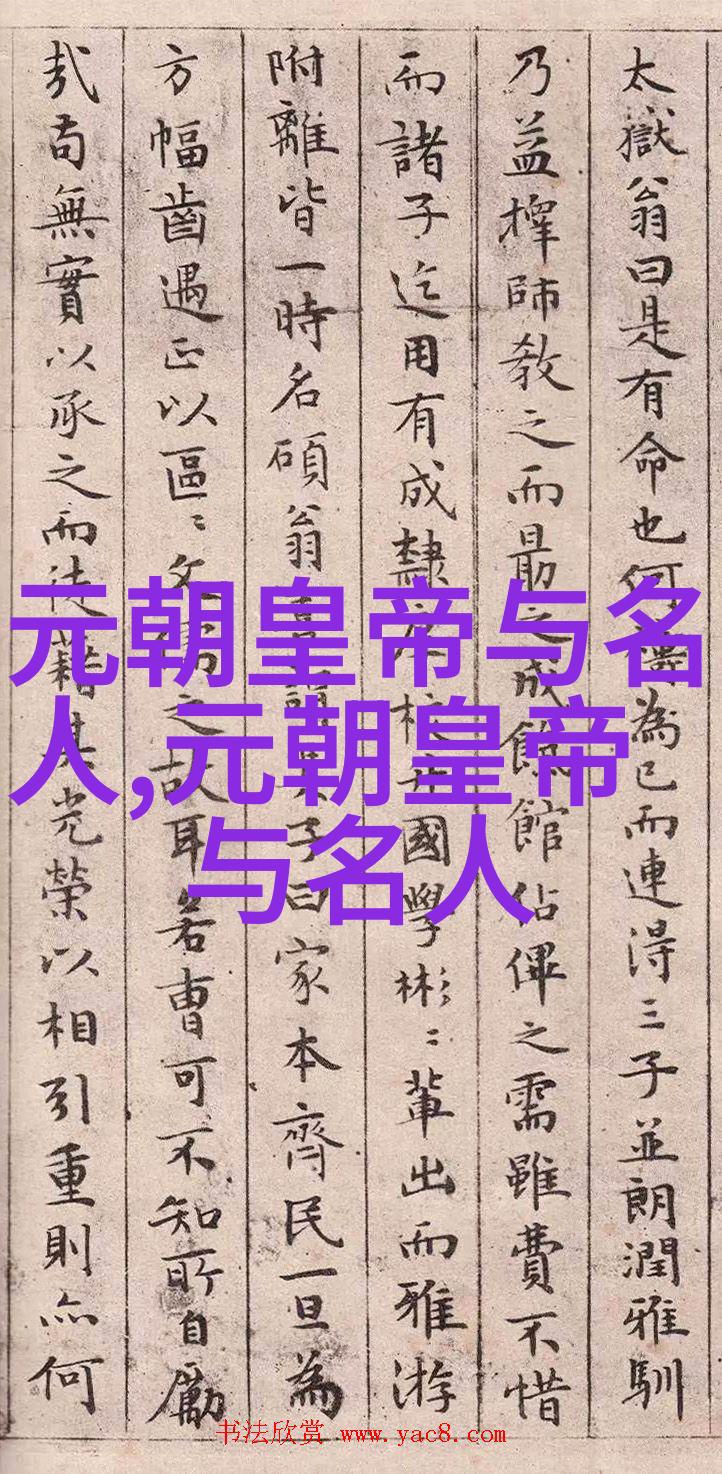 太獄翁曰是有命也何為已而連得三子並朗潤雅馴
乃益擇師教之而勗之成餼館佔之需雖費不惜
而諸子迄用有成隸校國學彬〻輩出而雅游
附離皆一時名碩翁喜謂子曰家本齊民一旦為
方幅齒遇正以區〻文儒之故耳若曹可不知所自勵
哉苟無實以承之而徒藉其光榮以相引重則亦何
元朝皇帝与名
人,元朝皇帝
与名人
书法欣赏 www.yac8.com